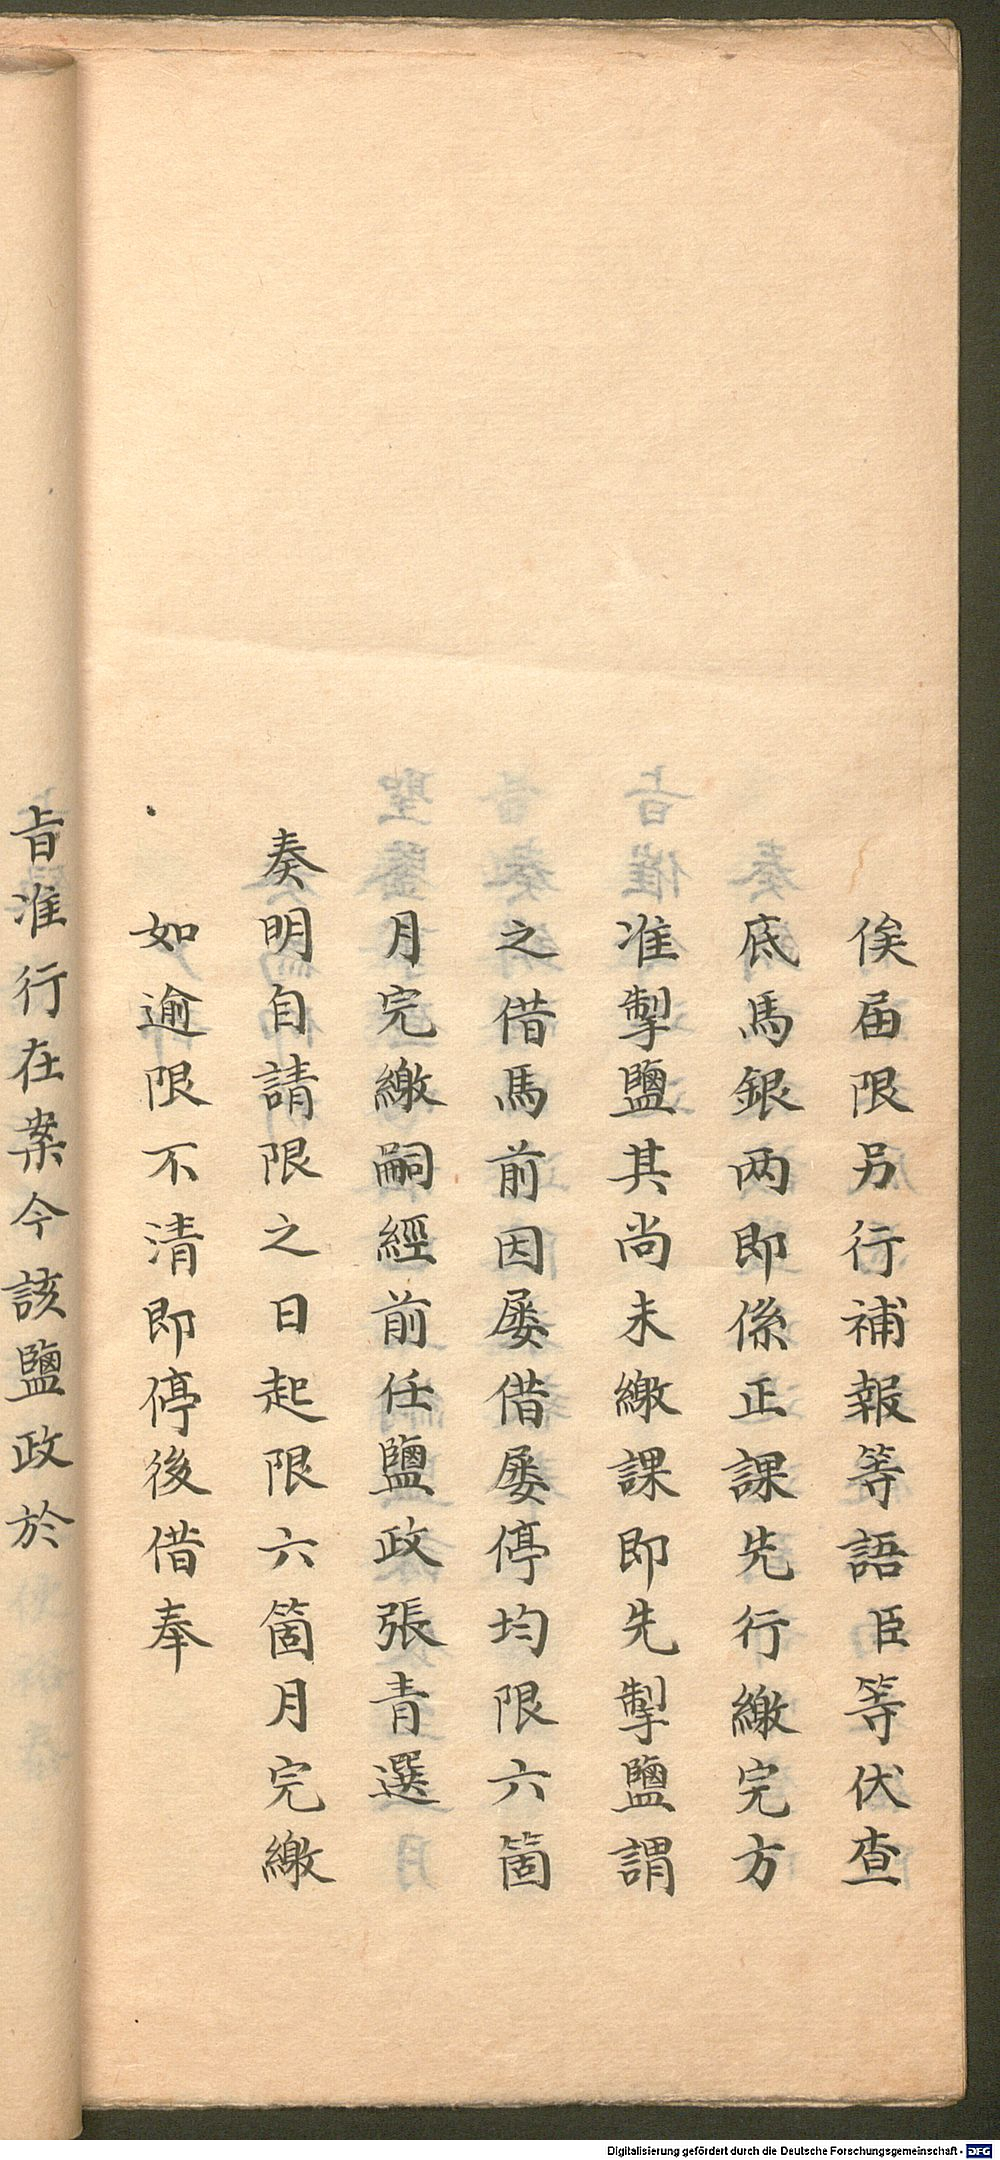 俟届限另行補報等語臣等伏查
底馬銀两即係正課先行繳完方
准掣鹽其尚未繳課即先掣鹽謂
之借馬前因屡借屡停均限六箇
月完繳嗣經前任鹽政張青選
奏明自請限之日起限六箇月完繳
如逾限不清即停後借奉
旨准行在案今該鹽政於
Digitalisierung gefördert durch die Deutsche Forschungsgemeinschaft - DFG